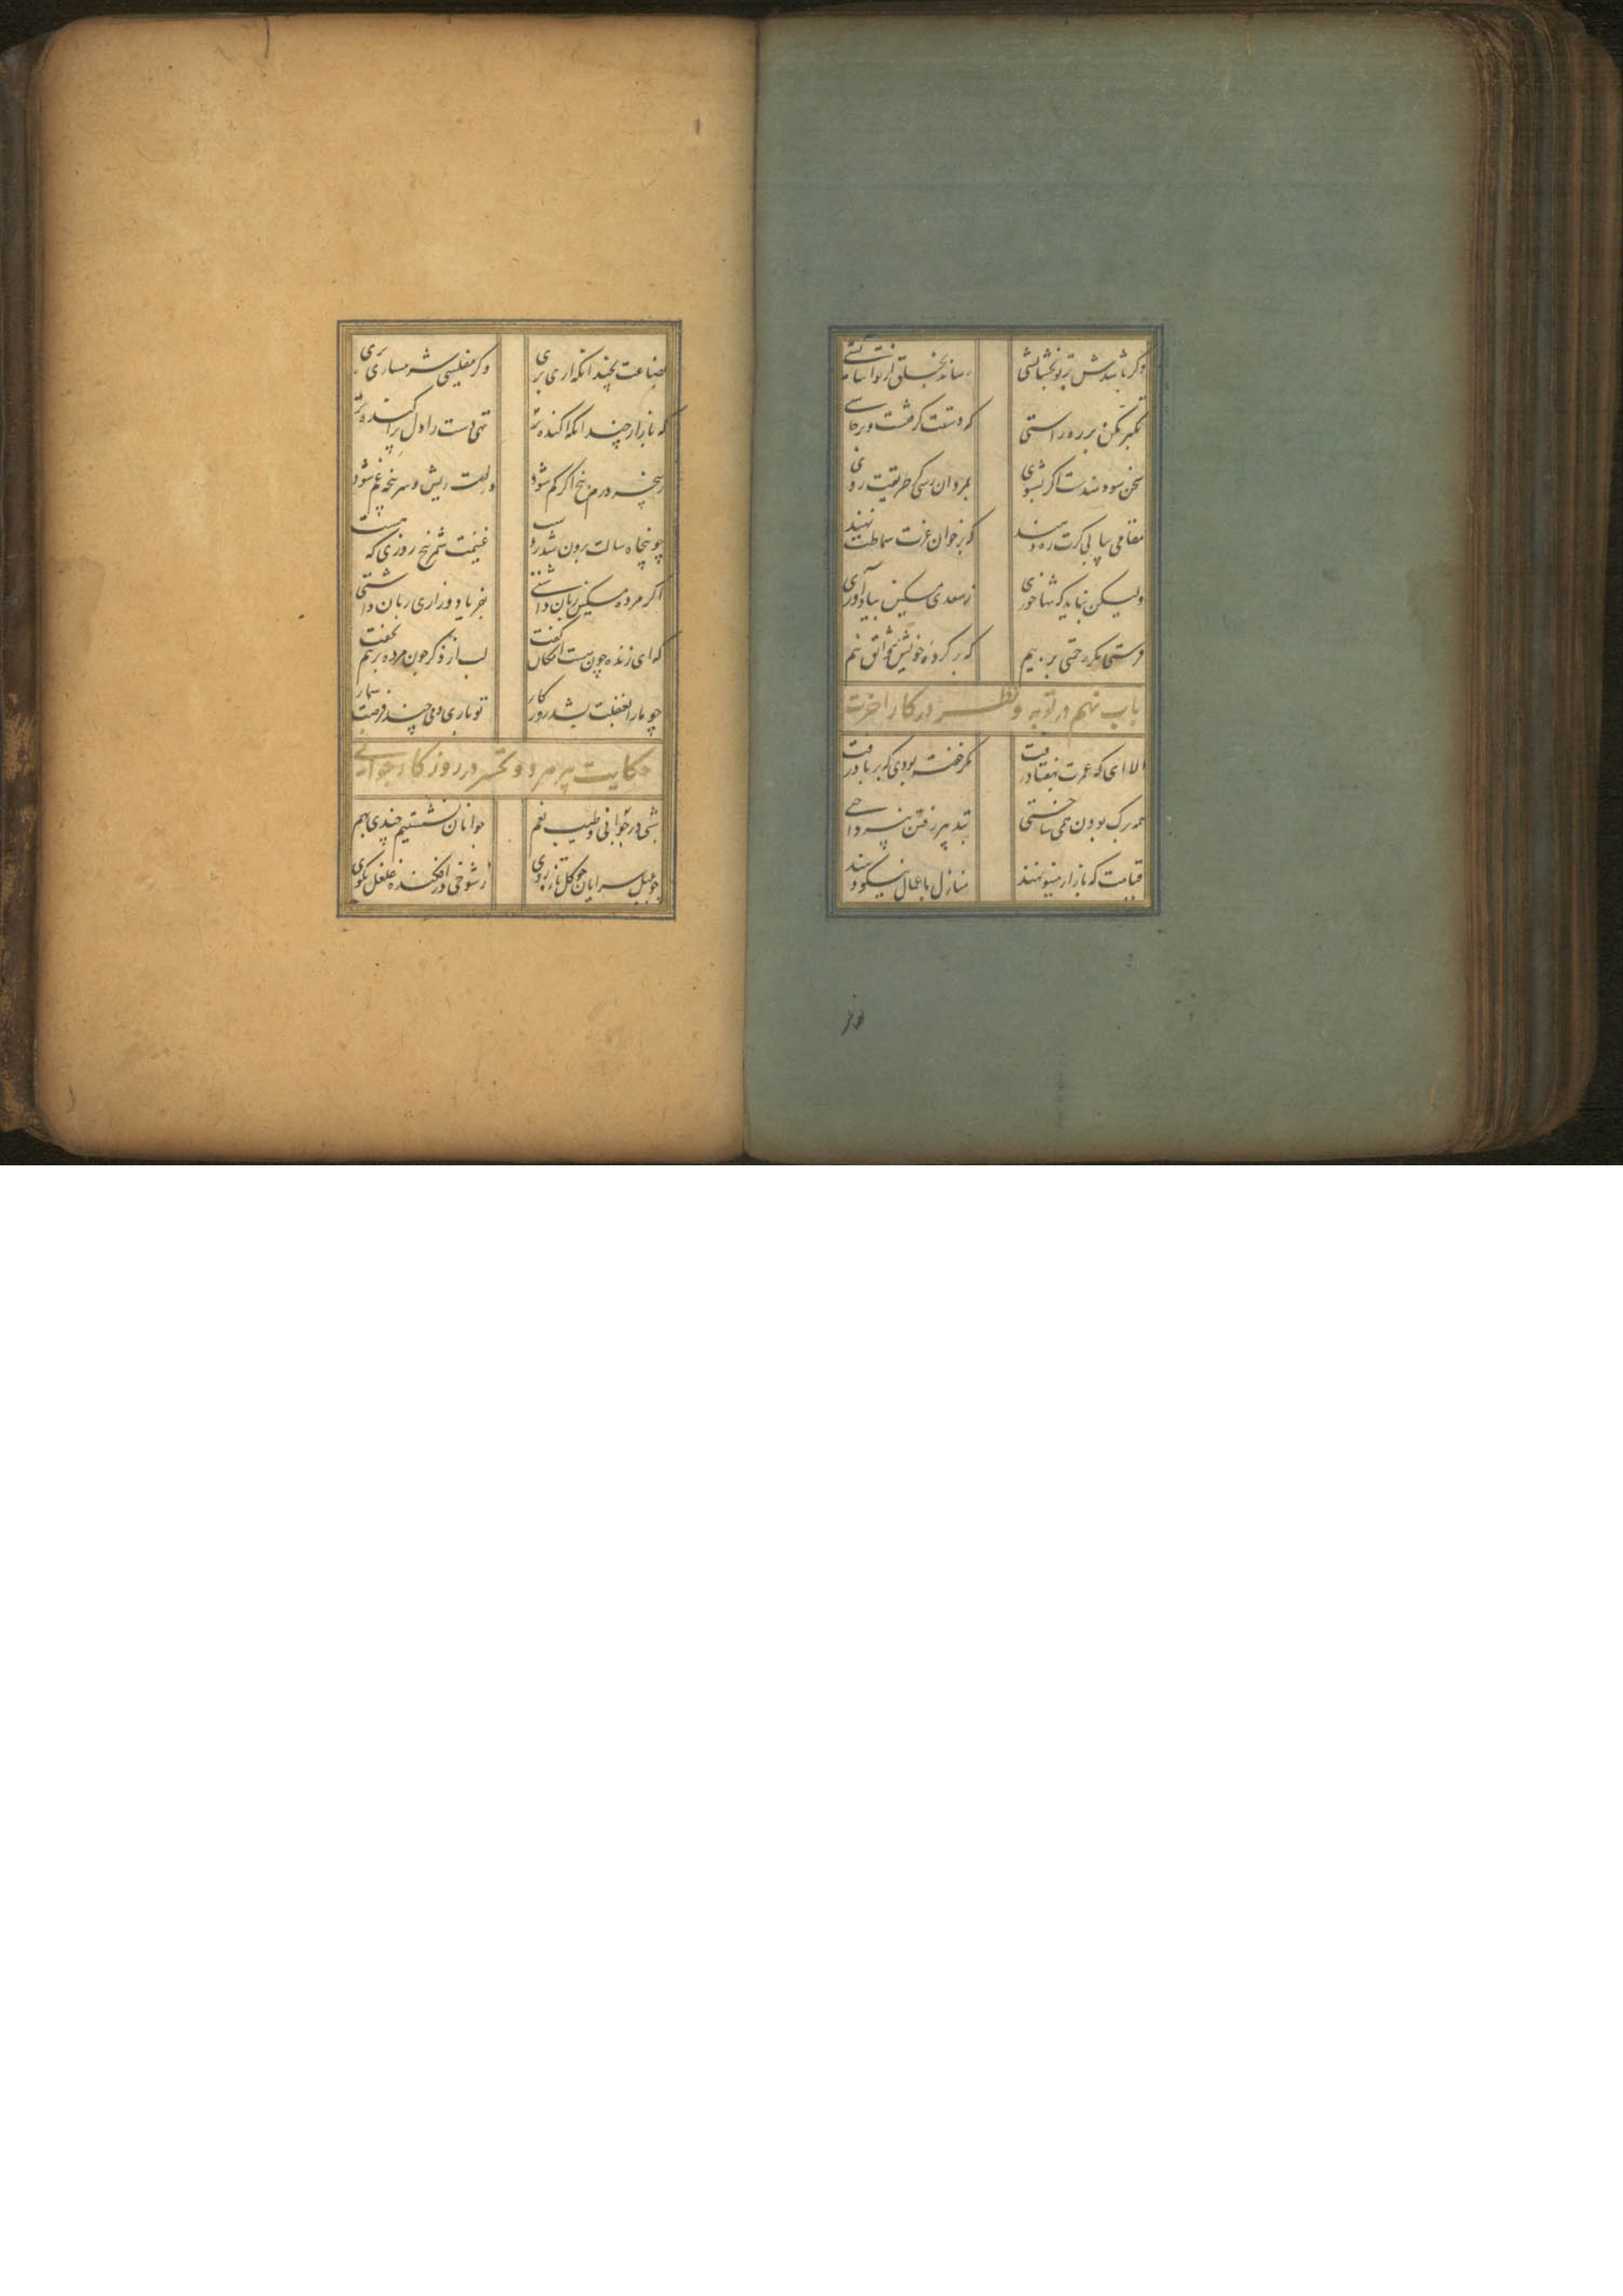 وکر باشدش بر تو بخشایشی رساند بخلق از تو اسایشی
تکبر مکن بر ره راستی که دستت گرفتند و برخاستی
سخن سودمندست اکر بشنوی بمردان رسی کر طریقت روی
مقامی بیابی کرت ره دهند که بر خوان عزت سماطت نهند
ولیکن نباید که تنها خوری ز سعدی مسکین بیاد آوری
فرستی مکر رحمتی بر پیم که بر کرده خویش واثق نیم
باب نهم در توبه و نظر در کار اخرت
الا ای که عمرت بهفتاد رفت مکر خفته بودی که بر باد رفت
همه برک بودن همی ساختی بتدبیر رفتن نپرداختی
قیامت که بازار مینو نهند منازل باعمال نیکو دهند
بضاعت بچندانکه اری بری وکر مفلسی شرمساری بری
که بازار چندانکه اکنده تر تهی دست را دل پراکنده تر
ز پنجه درم پنج اکر کم شود دلت ریش سرپنجه غم شود
چو پنجاه سالت برون شد ز دست غنیمت شمر پنج روزی که هست
اکر مرده مسکین زبان داشتی بفریاد و زاری زبان داشتی
که ای زنده چون هست امکان کفت لب از ذکر چون مرده بر هم بخفت
چو ما را بغفلت بشد روزکار تو باری دمی چند فرصت شمار
حکایت پیر مرد و تحسر در روزکار جوانی
شبی در جوانی و طیب نعم جوانان نشستیم چندی بهم
چو بلبل سرایان چو کل تازه روی ز شوخی در افکنده غلغل بکوی